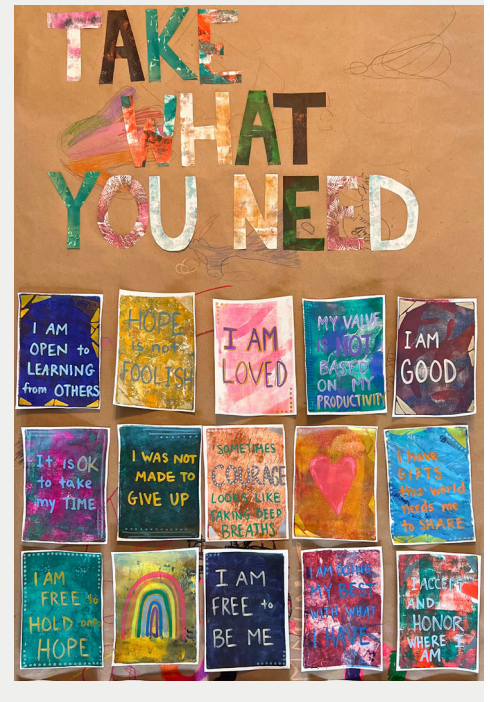 TAKE
WHAT
YOU NEED
I AM
OPEN to
LEARNING
from OTHERS
HOPE
is not
FOOLISH
I AM
LOVED
MY VALUE
IS NOT
BASED
ON MY
PRODUCTIVITY
I AM
GOOD
It is OK
to take
my TIME
I WAS NOT
MADE TO
GIVE UP
SOMETIMES
COURAGE
LOOKS LIKE
TAKING DEEP
BREATHS
I have
GIFTS
this world
needs me
to SHARE
I AM
FREE to
HOLD onto
HOPE
I AM
FREE to
BE ME
I AM DOING
MY BEST
WITH WHAT
I HAVE
I ACCEPT
AND
HONOR
WHERE I
AM